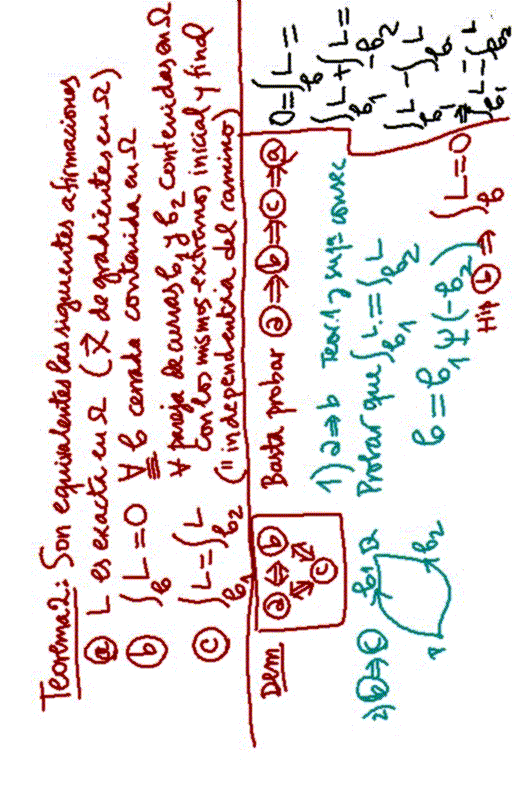 Teorema 2: Son equivalentes las siguientes afirmaciones
ⓐ L es exacta en Ω ( X⃗ de gradientes en Ω )
ⓑ ∫_b L = 0 ∀ b cerrada contenida en Ω
ⓒ ∫_b1 L = ∫_b2 L ∀ pareja de curvas b1 y b2 contenidas en Ω
con los mismos extremos inicial y final
(" independencia del camino)
Dem
ⓐ ⇔ ⓑ
ⓒ
Basta probar ⓐ ⇒ ⓑ ⇒ ⓒ ⇒ ⓐ
1) a ⇒ b Teor. 1 y sus consec
2) ⓑ ⇒ ⓒ
b1 Ω
b2
Probar que ∫_b1 L = ∫_b2 L
b = b1 ∪ (-b2)
Hip ⓑ ⇒ ∫_b L = 0
0 = ∫_b L =
∫_b1 L + ∫_-b2 L =
∫_b1 L - ∫_b2 L
⇒ ∫_b1 L = ∫_b2 L